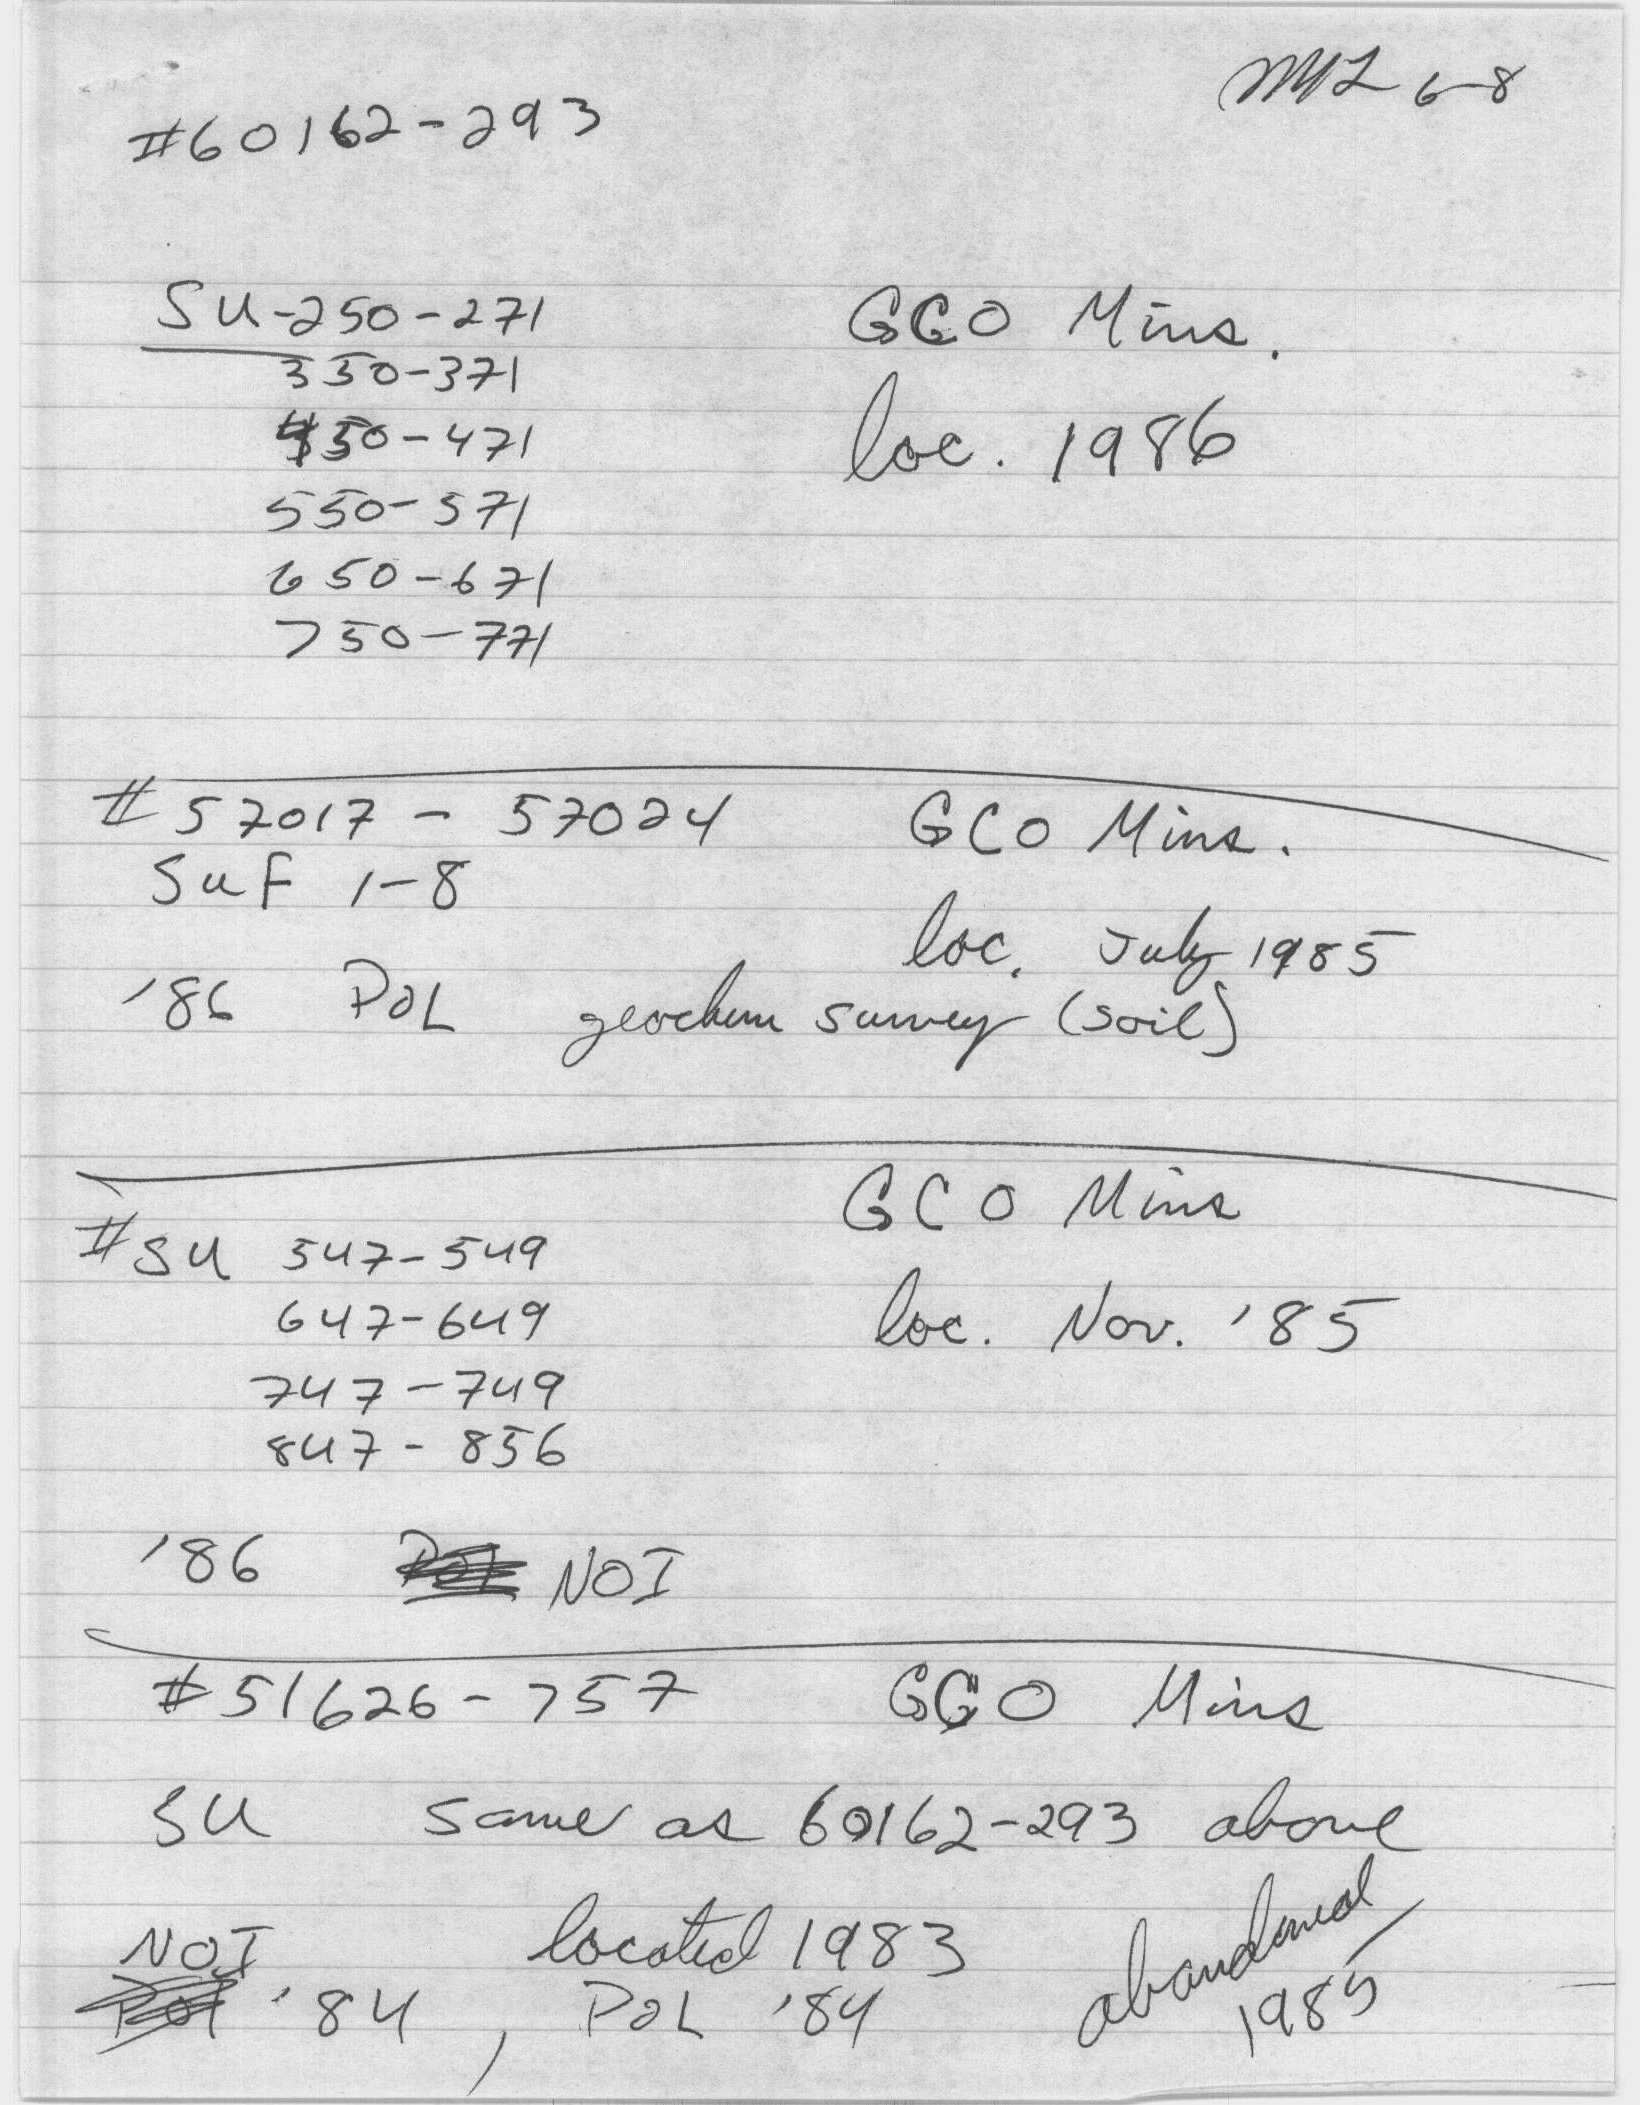 MYL 6-8
#60162-293
SU-250-271 GCO Mins.
350-371
450-471 loc. 1986
550-571
650-671
750-771
#57017 - 57024 GCO Mins.
SuF 1-8
loc. July 1985
'86 POL geochem survey (soil)
GCO Mins
#SU 547-549
647-649 loc. Nov. '85
747-749
847-856
'86 NOI
#51626-757 GCO Mins
SU same as 60162-293 above
NOI located 1983 abandoned
'84, POL '84 1985